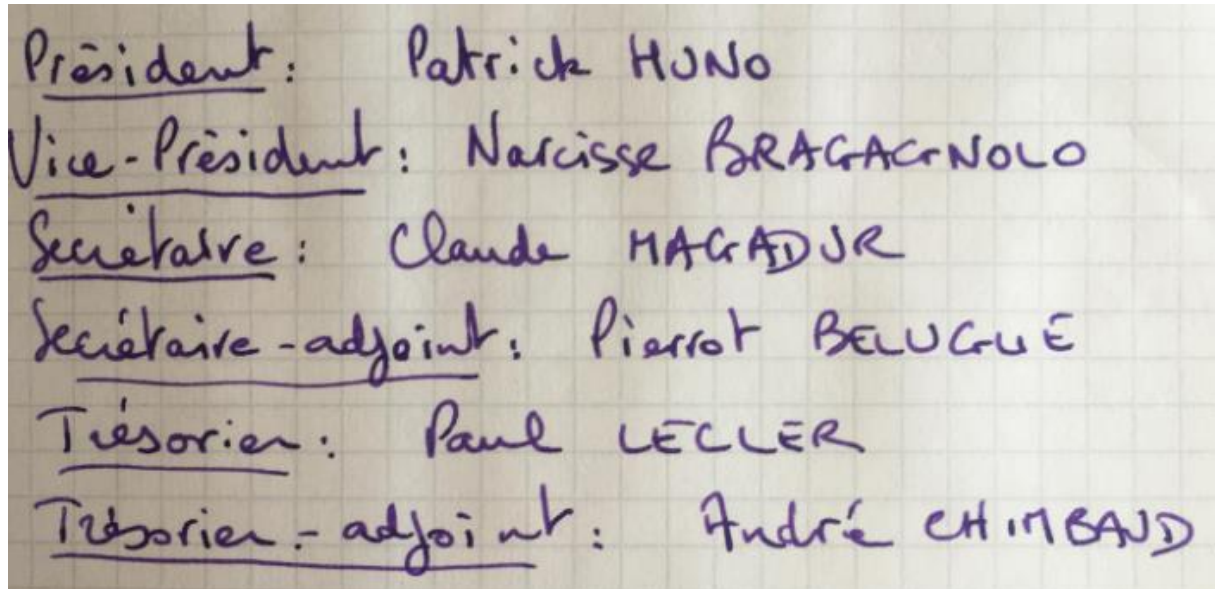 Président : Patrick HUNO
Vice-Président : Narcisse BRAGAGNOLO
Secrétaire : Claude MAGADUR
Secrétaire-adjoint : Pierrot BELUGUE
Trésorier : Paul LECLER
Trésorier-adjoint : André CHIMBAUD